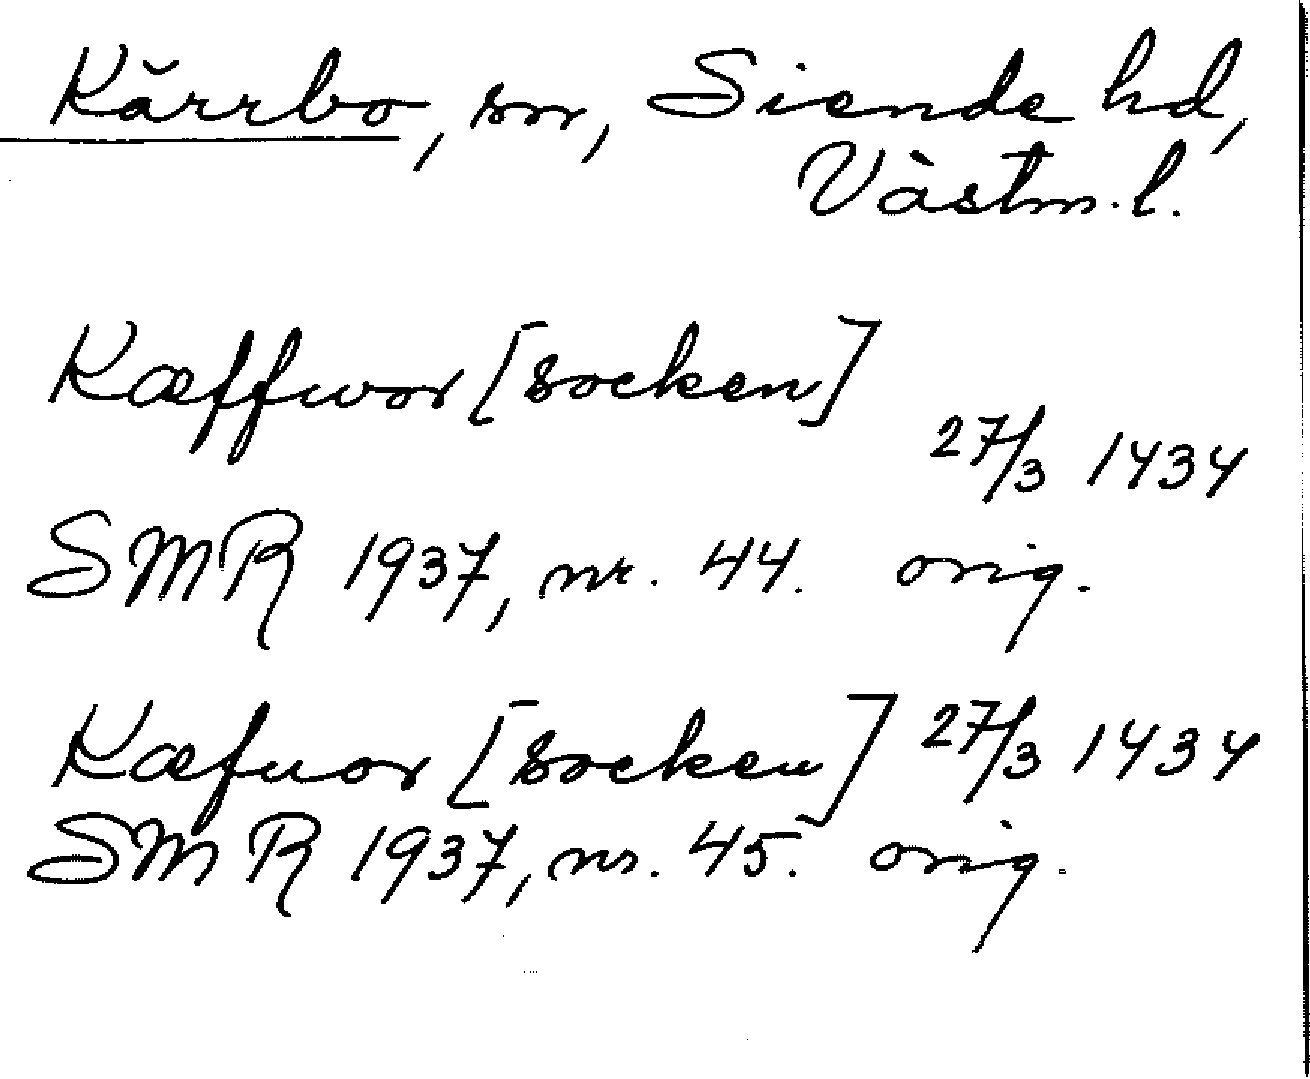 Kärrbo, sn, Siende hd,
Västm. l.
Kæffwor [socken]
27/3 1434
SMR 1937, nr. 44. orig.
Kæfuor [socken] 27/3 1434
SMR 1937, nr. 45. orig.